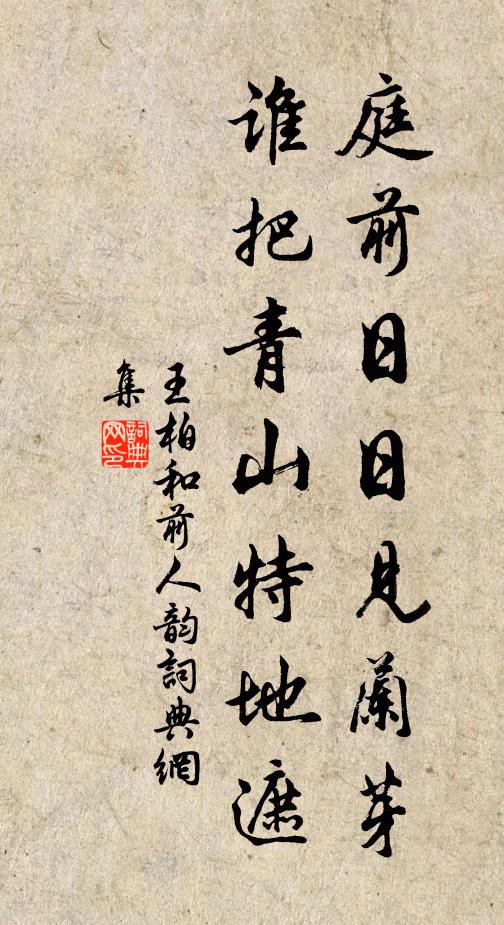 庭前日日見蘭芽
誰把青山特地遮
王柏和前人韵詞典網
集
詞典
网印